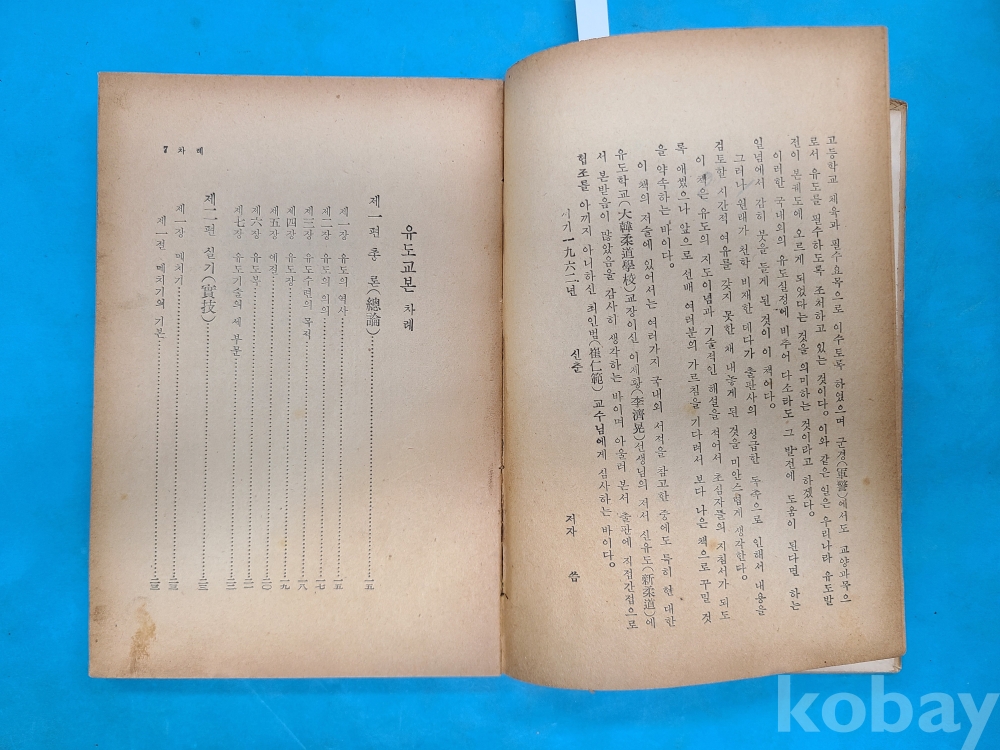 고등학교 체육과 필수요목으로 이수토록 하였으며 군경(軍警)에서도 교양과목으
로서 유도를 필수하도록 조처하고 있는 것이다. 이와 같은 일은 우리나라 유도발
전이 본궤도에 오르게 되었다는 것을 의미하는 것이라고 하겠다.
이러한 국내외의 유도실정에 비추어 다소라도 그 발전에 도움이 된다면 하는
일념에서 감히 붓을 들게 된 것이 이 책이다.
그러나 원래가 천학 비재한 데다가 출판사의 성급한 독촉으로 인해서 내용을
검토할 시간적 여유를 갖지 못한 채 내놓게 된 것을 미안스럽게 생각한다.
이 책은 유도의 지도이념과 기술적인 해설을 적어서 초심자들의 지침서가 되도
록 애썼으나 앞으로 선배 여러분의 가르침을 기다려서 보다 나은 책으로 꾸밀 것
을 약속하는 바이다.
이 책의 저술에 있어서는 여러가지 국내외 서적을 참고한 중에도 특히 현 대한
유도학교(大韓柔道學校)교장이신 이제황(李濟晃)선생님의 저서 신유도(新柔道)에
서 본받음이 많았음을 감사히 생각하는 바이며 아울러 본서 출판에 직접간접으로
협조를 아끼지 아니하신 최인범(崔仁範)교수님에게 심사하는 바이다.
서기 一九六二년 신춘
저자 씀
7 차 례
유도교본 차례
제一편 총 론(總論)……一五
제一장 유도의 역사……一五
제二장 유도의 의의……一七
제三장 유도수련의 목적……一八
제四장 유도장……一九
제五장 예점……二〇
제六장 유도복……二一
제七장 유도기술의 세 부문……二二
제二편 실기(實技)……二三
제一장 메치기……二三
제一절 메치기의 기본……二三
kobay